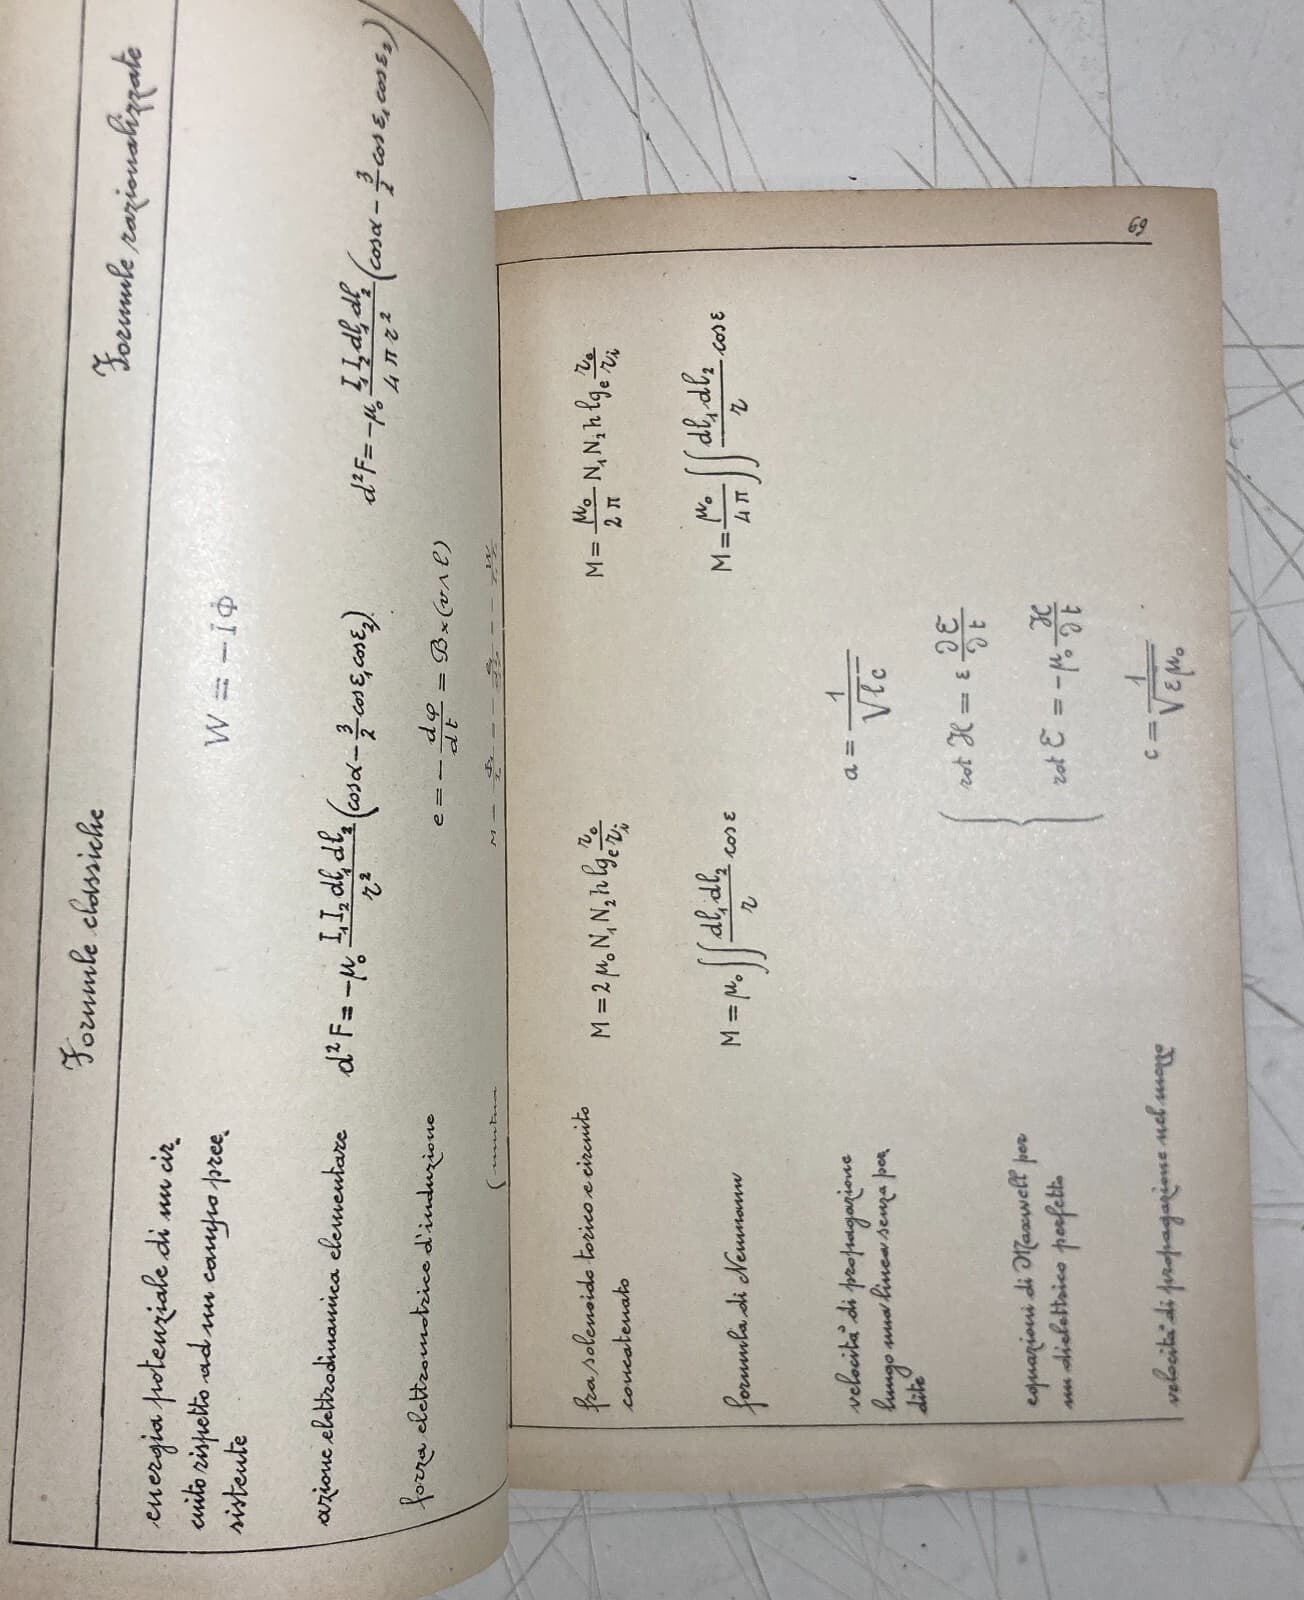 Formule classiche
Formule razionalizzate
energia potenziale di un cir-
cuito rispetto ad un campo pree-
sistente
W = - I Φ
azione elettrodinamica elementare
d²F = -μ₀ I₁I₂dl₁dl₂/r² (cosα - 3/2 cosε₁cosε₂)
d²F = -μ₀ I₁I₂dl₁dl₂/4πr² (cosα - 3/2 cosε₁cosε₂)
forza elettromotrice d'induzione
e = - dφ/dt = B × (v ∧ l)
fra solenoide torico e circuito
concatenato
M = 2μ₀N₁N₂h lgₑ rₑ/rᵢ
M = μ₀/2π N₁N₂h lgₑ rₑ/rᵢ
formula di Neumann
M = μ₀ ∫∫ dl₁dl₂/r cosε
M = μ₀/4π ∫∫ dl₁dl₂/r cosε
velocità di propagazione
lungo una linea senza per-
dite
a = 1/√lc
equazioni di Maxwell per
un dielettrico perfetto
rot ℋ = ε ∂ℰ/∂t
rot ℰ = -μ₀ ℋ/∂t
velocità di propagazione nel mezzo
c = 1/√εμ₀
69